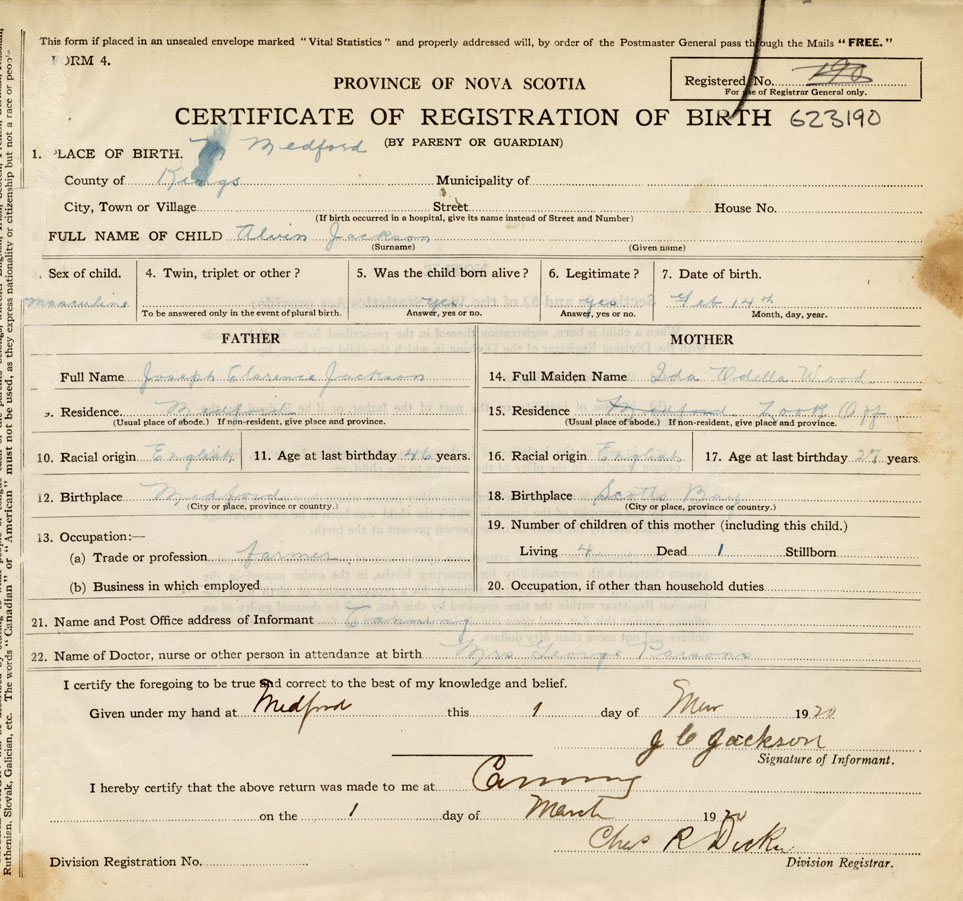 This form if placed in an unsealed envelope marked "Vital Statistics" and properly addressed will, by order of the Postmaster General pass through the Mails "FREE."
FORM 4.
Registered No. 190
For use of Registrar General only.
PROVINCE OF NOVA SCOTIA
CERTIFICATE OF REGISTRATION OF BIRTH 623190
(BY PARENT OR GUARDIAN)
1. PLACE OF BIRTH. Medford
County of Kings Municipality of
City, Town or Village Street House No.
(If birth occurred in a hospital, give its name instead of Street and Number)
FULL NAME OF CHILD Alvin Jackson
(Surname) (Given name)
Sex of child. 4. Twin, triplet or other? 5. Was the child born alive? 6. Legitimate? 7. Date of birth.
masculine yes yes Feb 14th
To be answered only in the event of plural birth. Answer, yes or no. Answer, yes or no. Month, day, year.
FATHER MOTHER
Full Name Joseph Clarence Jackson 14. Full Maiden Name Ida Odella Wood
9. Residence. Medford 15. Residence Medford Look Off
(Usual place of abode.) If non-resident, give place and province. (Usual place of abode.) If non-resident, give place and province.
10. Racial origin English 11. Age at last birthday 46 years. 16. Racial origin English 17. Age at last birthday 27 years.
12. Birthplace Medford 18. Birthplace Scotts Bay
(City or place, province or country.) (City or place, province or country.)
13. Occupation:— 19. Number of children of this mother (including this child.)
(a) Trade or profession farmer Living 4 Dead 1 Stillborn
(b) Business in which employed 20. Occupation, if other than household duties
21. Name and Post Office address of Informant Canning
22. Name of Doctor, nurse or other person in attendance at birth Mrs George Parsons
I certify the foregoing to be true and correct to the best of my knowledge and belief.
Given under my hand at Medford this 1 day of Mar 1920
J C Jackson
Signature of Informant.
I hereby certify that the above return was made to me at Canning
on the 1 day of March 1920
Chas R
Division Registration No. Division Registrar.